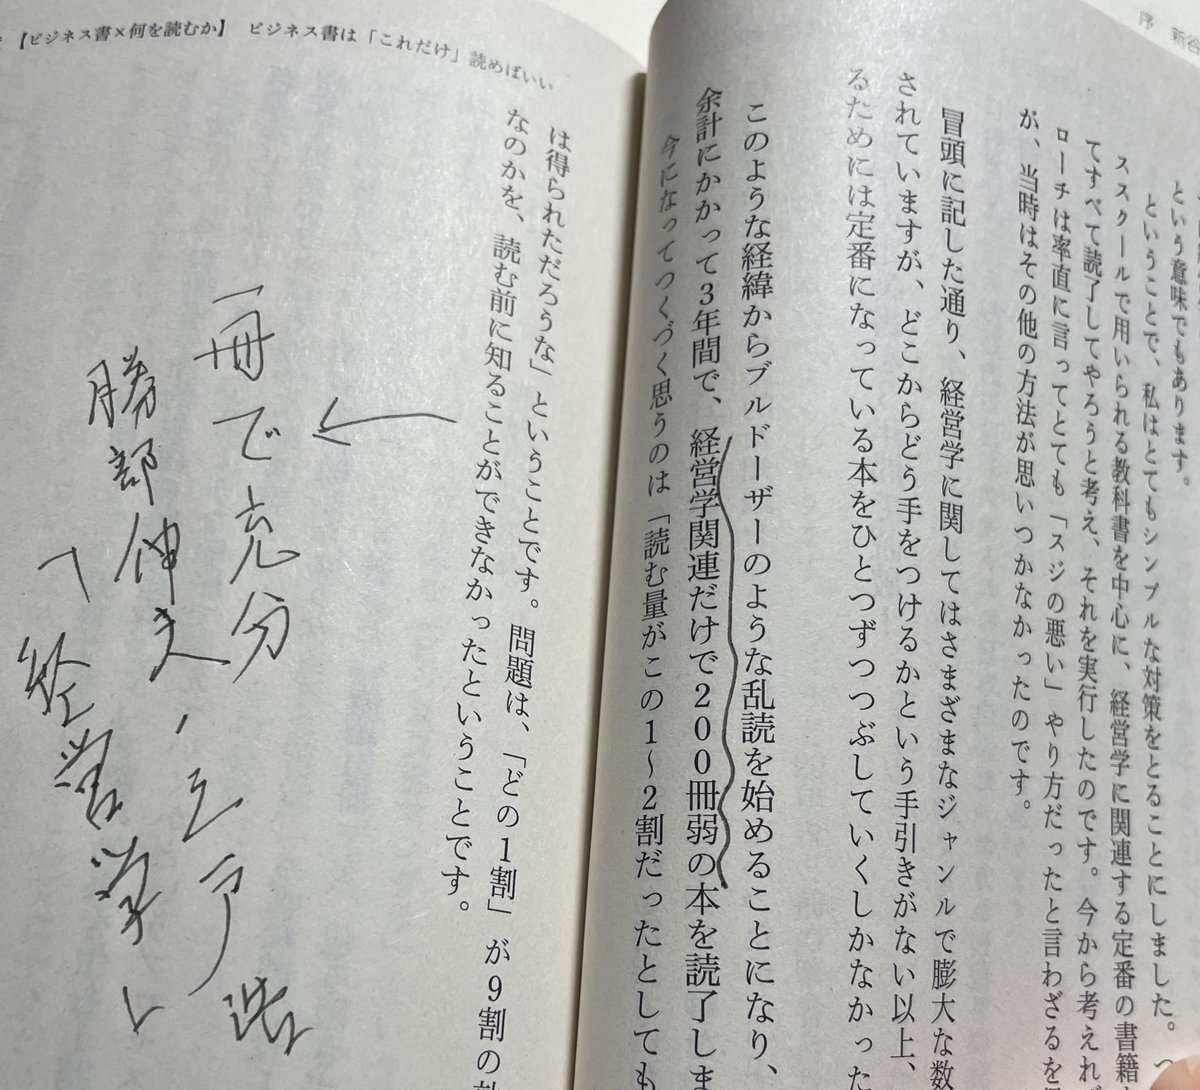 序 新谷
という意味でもあります。
ということで、私はとてもシンプルな対策をとることにしました。つ
ススクールで用いられる教科書を中心に、経営学に関連する定番の書籍
てすべて読了してやろうと考え、それを実行したのです。今から考えれ
ローチは率直に言ってとても「スジの悪い」やり方だったと言わざるを
が、当時はその他の方法が思いつかなかったのです。
冒頭に記した通り、経営学に関してはさまざまなジャンルで膨大な数
されていますが、どこからどう手をつけるかという手引きがない以上、
るためには定番になっている本をひとつずつつぶしていくしかなかった
このような経緯からブルドーザーのような乱読を始めることになり、
余計にかかって3年間で、経営学関連だけで200冊弱の本を読了しま
今になってつくづく思うのは「読む量がこの1〜2割だったとしても
【ビジネス書×何を読むか】 ビジネス書は「これだけ」読めばいい
は得られただろうな」ということです。問題は、「どの1割」が9割の
なのかを、読む前に知ることができなかったということです。
一冊で充分
勝部伸夫、三戸浩
「経営学」